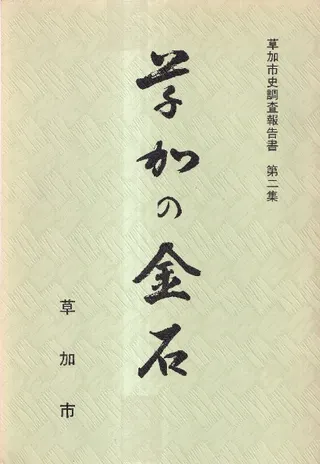 草加市史調査報告書 第二集
草加の金石
草加市